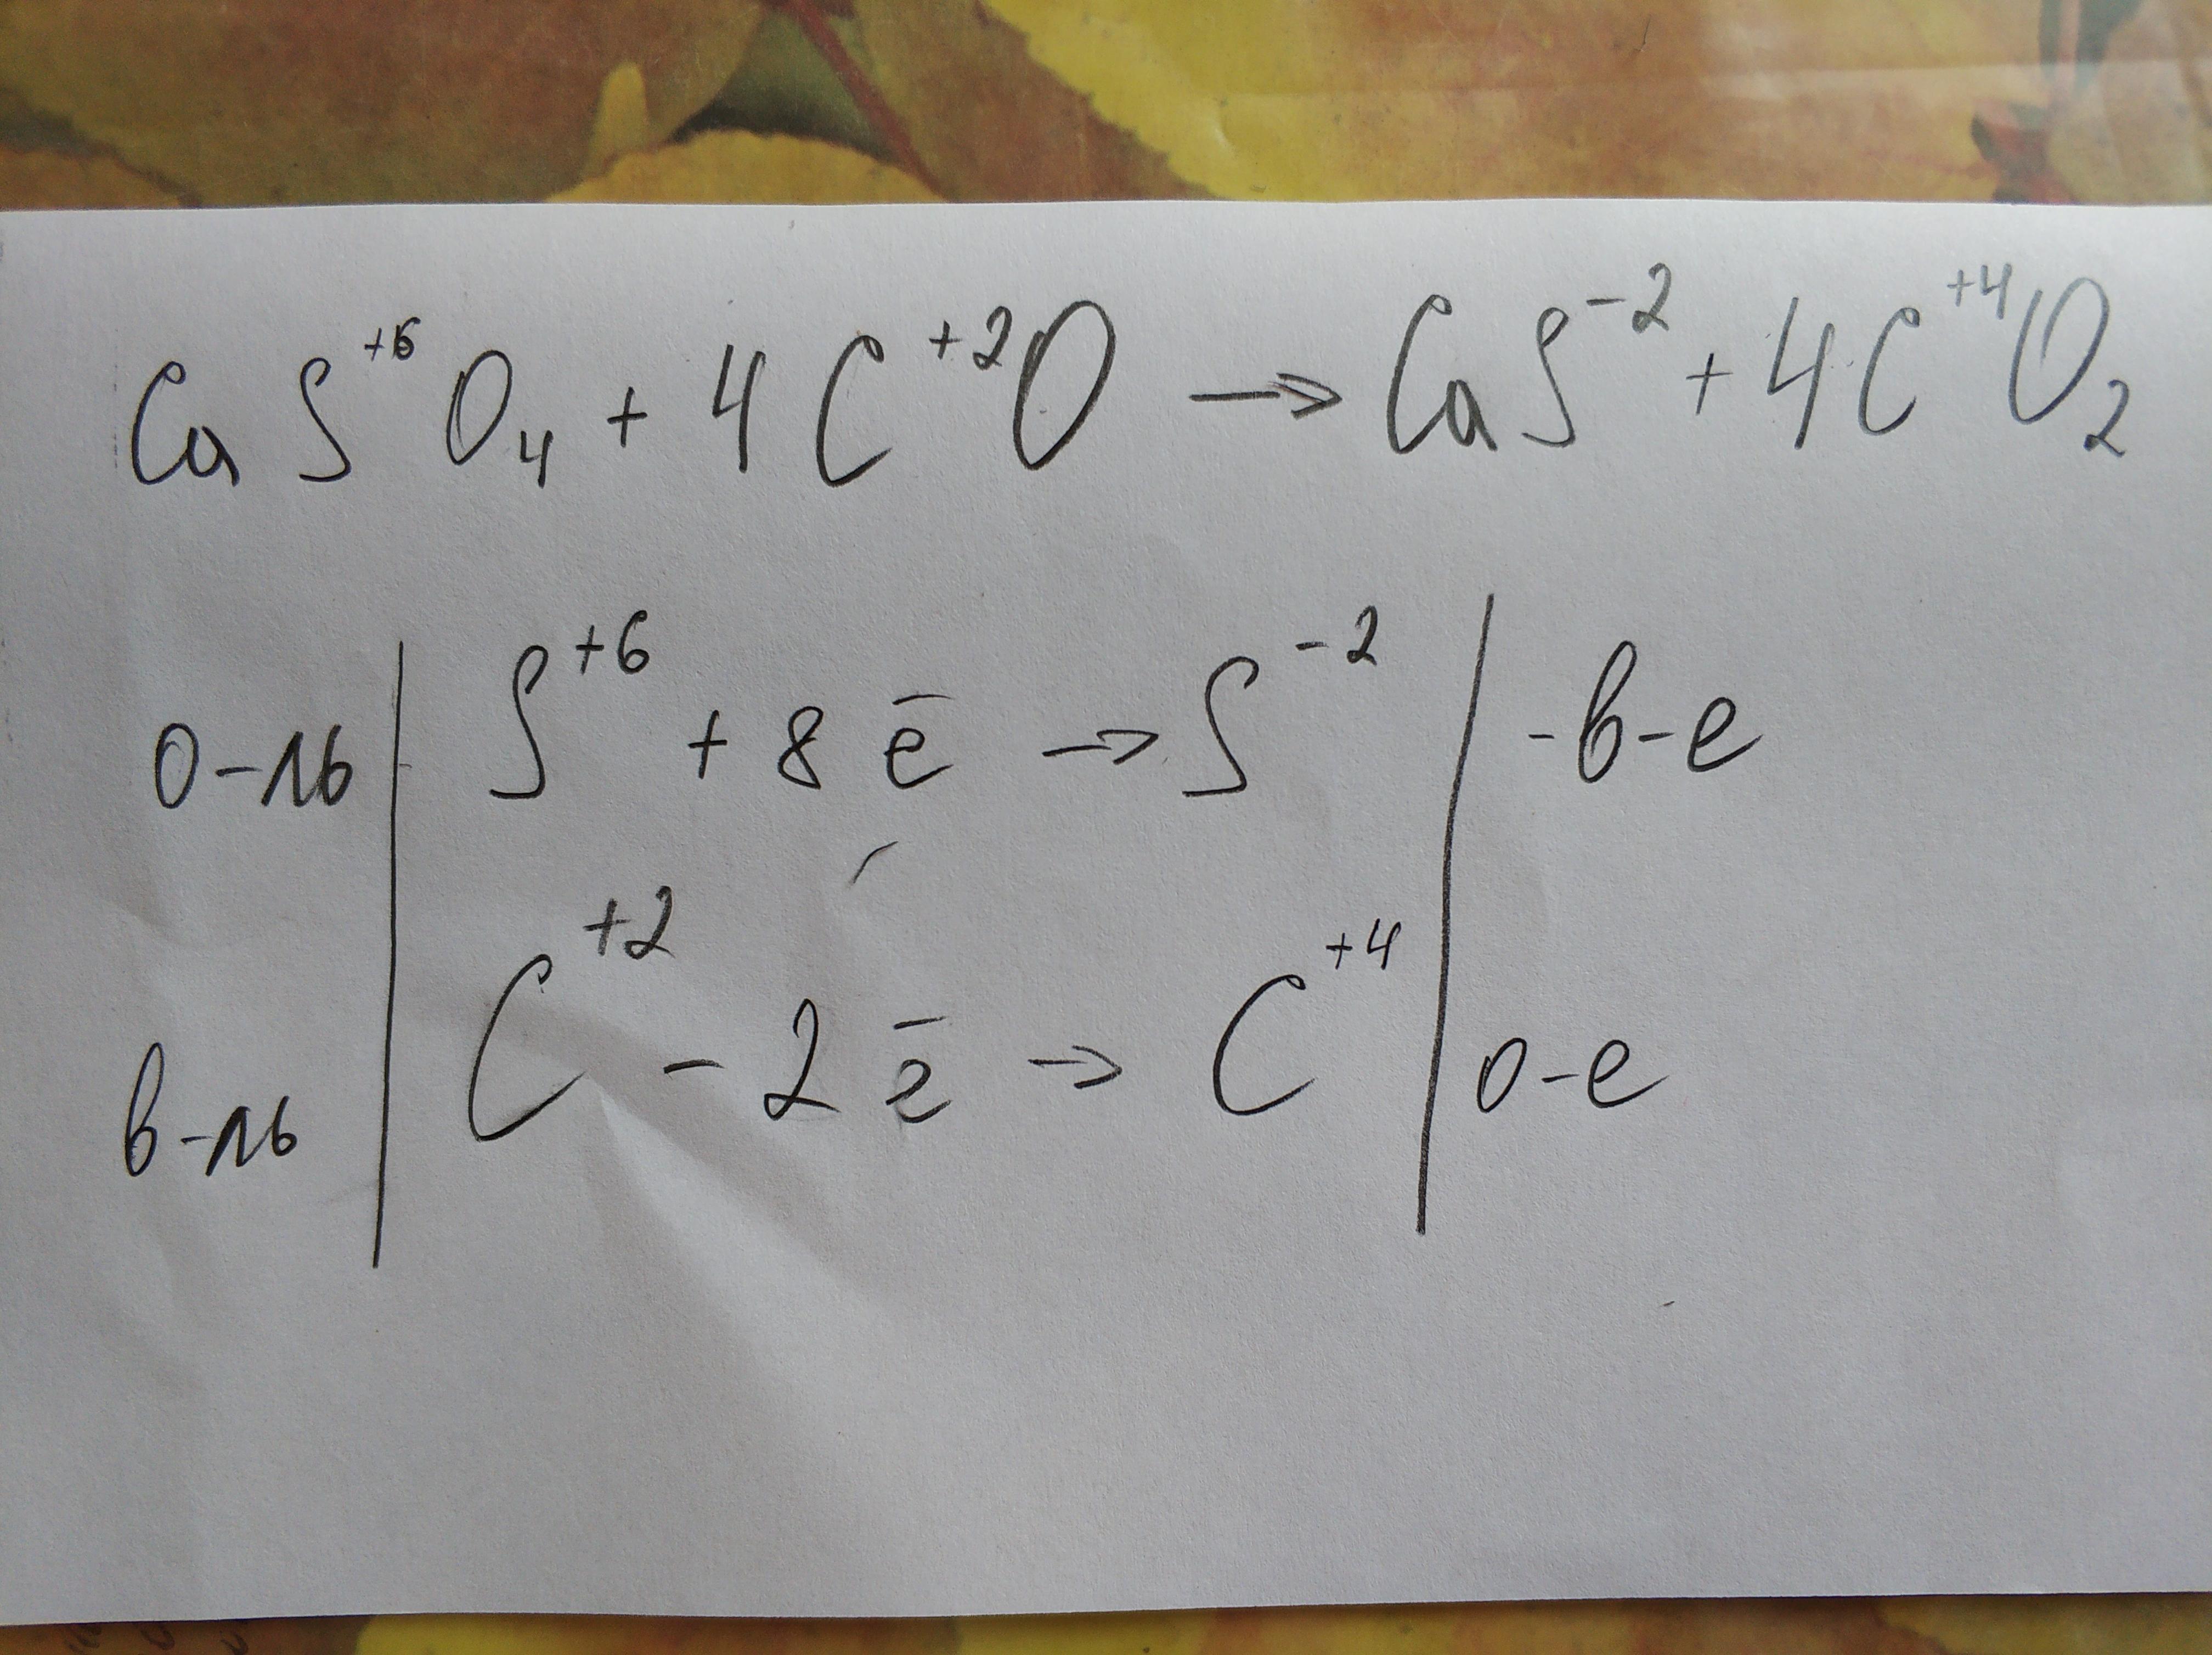 CaS⁺⁶O₄ + 4C⁺²O → CaS⁻² + 4C⁺⁴O₂
о-ль | S⁺⁶ + 8ē → S⁻² | -в-е
в-ль | C⁺² - 2ē → C⁺⁴ | о-е